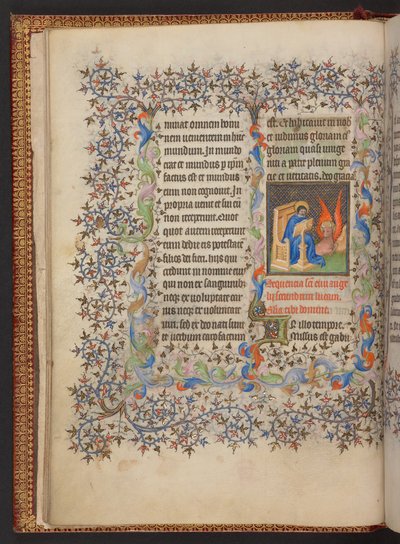 minat omnem homi
nem uenientem in hūc
mundum. In mund
erat et mundus p ip̄m
factus est et mundus
eum non cognouit. In
propria uenit et sui eū
non receperunt. Quot
quot autem receperūt
eum dedit eis potestatē
filios dei fieri. hiis qui
credunt in nomine eius
qui non ex sanguinib
neqz ex uoluptate car
nis neqz ex uoluntate
uiri. sed ex deo nati sunt
et uerbum caro factum
est. et habitauit in nob
et uidimus gloriam eī
gloriam quasi unige
niti a patre plenum gra
cie et ueritatis. deo gracias
Sequencia sci̅ euuange
lij secundum lucam.
Gl̅ia tibi domine.
In illo tempore
missus est gabri